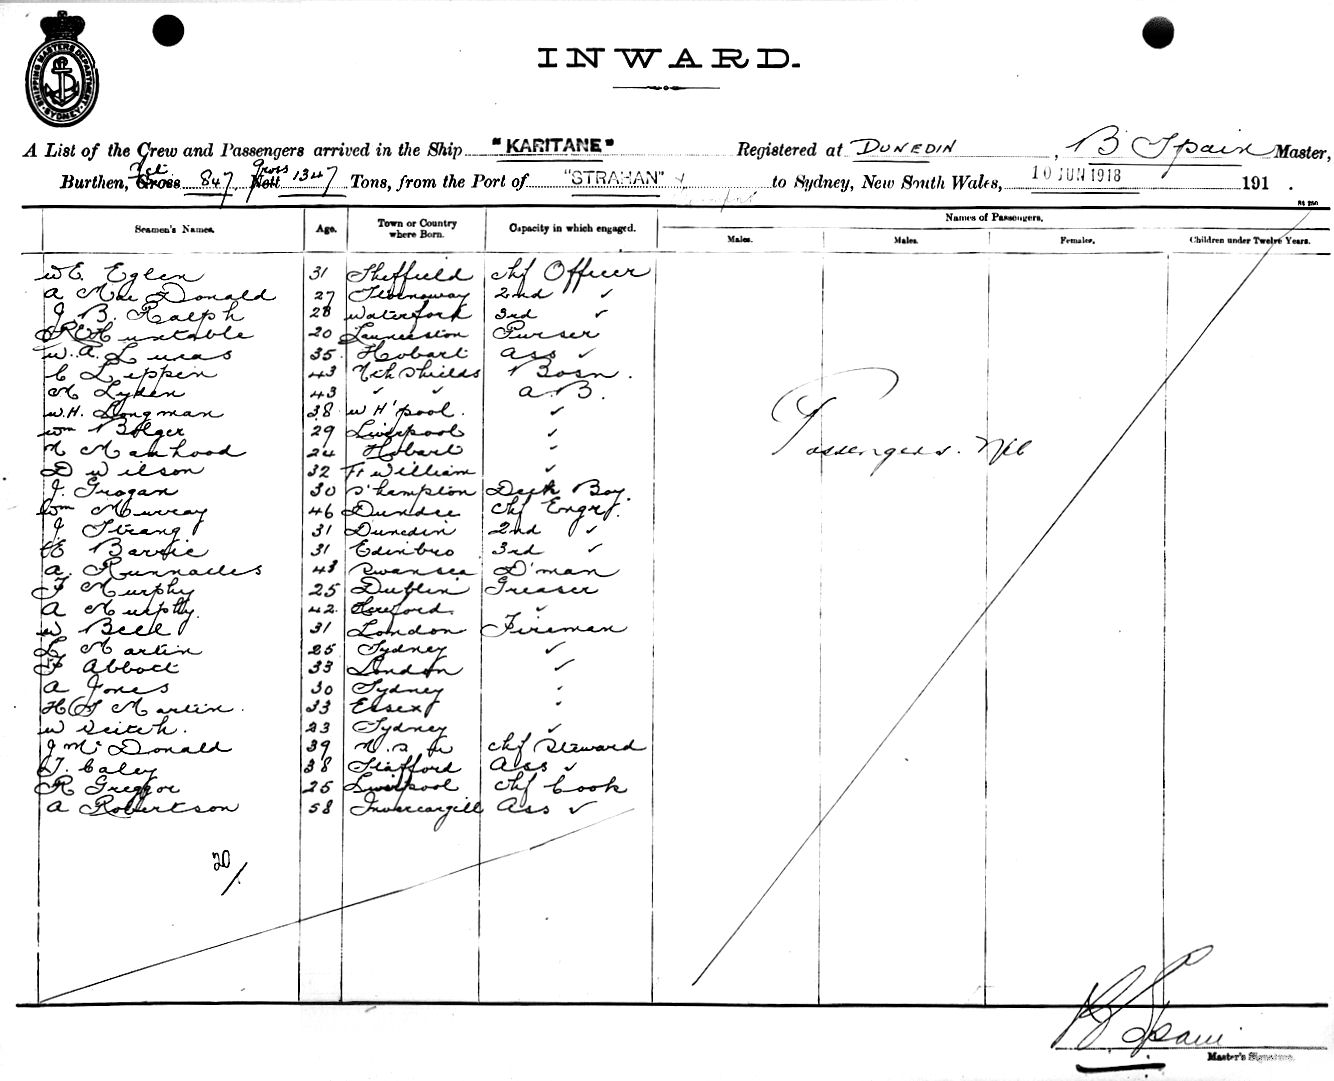 SHIPPING MASTERS DEPARTMENT SYDNEY
INWARD.
A List of the Crew and Passengers arrived in the Ship "KARITANE" Registered at DUNEDIN, B Spain Master,
Burthen, Gross 847 Nett Gross 1347 Tons, from the Port of "STRAHAN" to Sydney, New South Wales, 10 JUN 1918 191 .
Names of Passengers.
Seamen's Names. Age. Town or Country where Born. Capacity in which engaged. Males. Males. Females. Children under Twelve Years.
W E Eglen 31 Sheffield Chf Officer
A Mac Donald 27 Stornoway 2nd ✓
J B. Ralph 28 Waterford 3rd ✓
R Huxtable 20 Launceston Purser
W. A. Lucas 35 Hobart Ass ✓
C Leppin 43 Nth Shields Bosn.
M Lyden 43 ✓ ✓ A B.
W. H. Longman 38 W H'pool. ✓
Wm Bolger 29 Liverpool ✓
N Manhood 24 Hobart ✓
D Wilson 32 Ft William ✓
J. Grogan 30 S'hampton Deck Boy.
Wm Murray 46 Dundee Chf Engr.
J Strang 31 Dunedin 2nd ✓
E Barrie 31 Edinbro 3rd ✓
A. Runnacles 43 Swansea D'man
F Murphy 25 Dublin Greaser
A Murphy. 42 Hereford. ✓
W Bell 31 London Fireman
L Martin 25 Sydney ✓
F Abbott 33 London ✓
A Jones 30 Sydney ✓
H S Martin. 33 Essex ✓
W Veitch. 23 Sydney ✓
J Mc Donald 39 N. S. W Chf Steward
T. Caley 38 Stafford Ass ✓
R Greggor 25 Liverpool Chf Cook
A Robertson 58 Invercargill Ass ✓
Passengers. Nil
B Spain
Master's Signature.